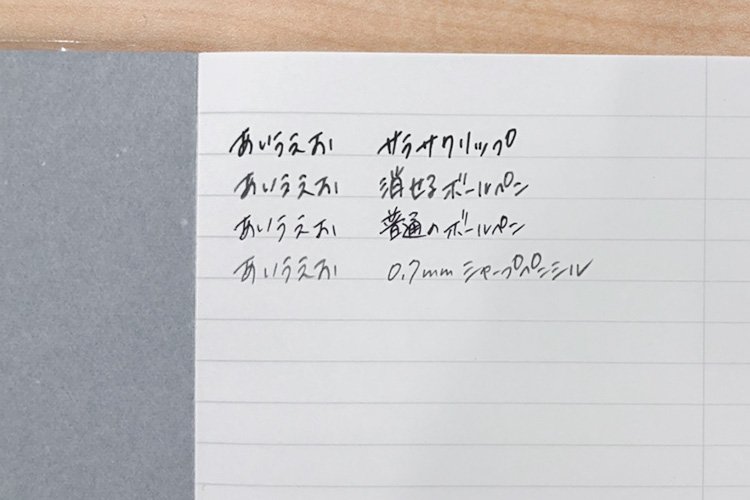 あいうえお サラサクリップ
あいうえお 消せるボールペン
あいうえお 普通のボールペン
あいうえお 0.7mm シャープペンシル